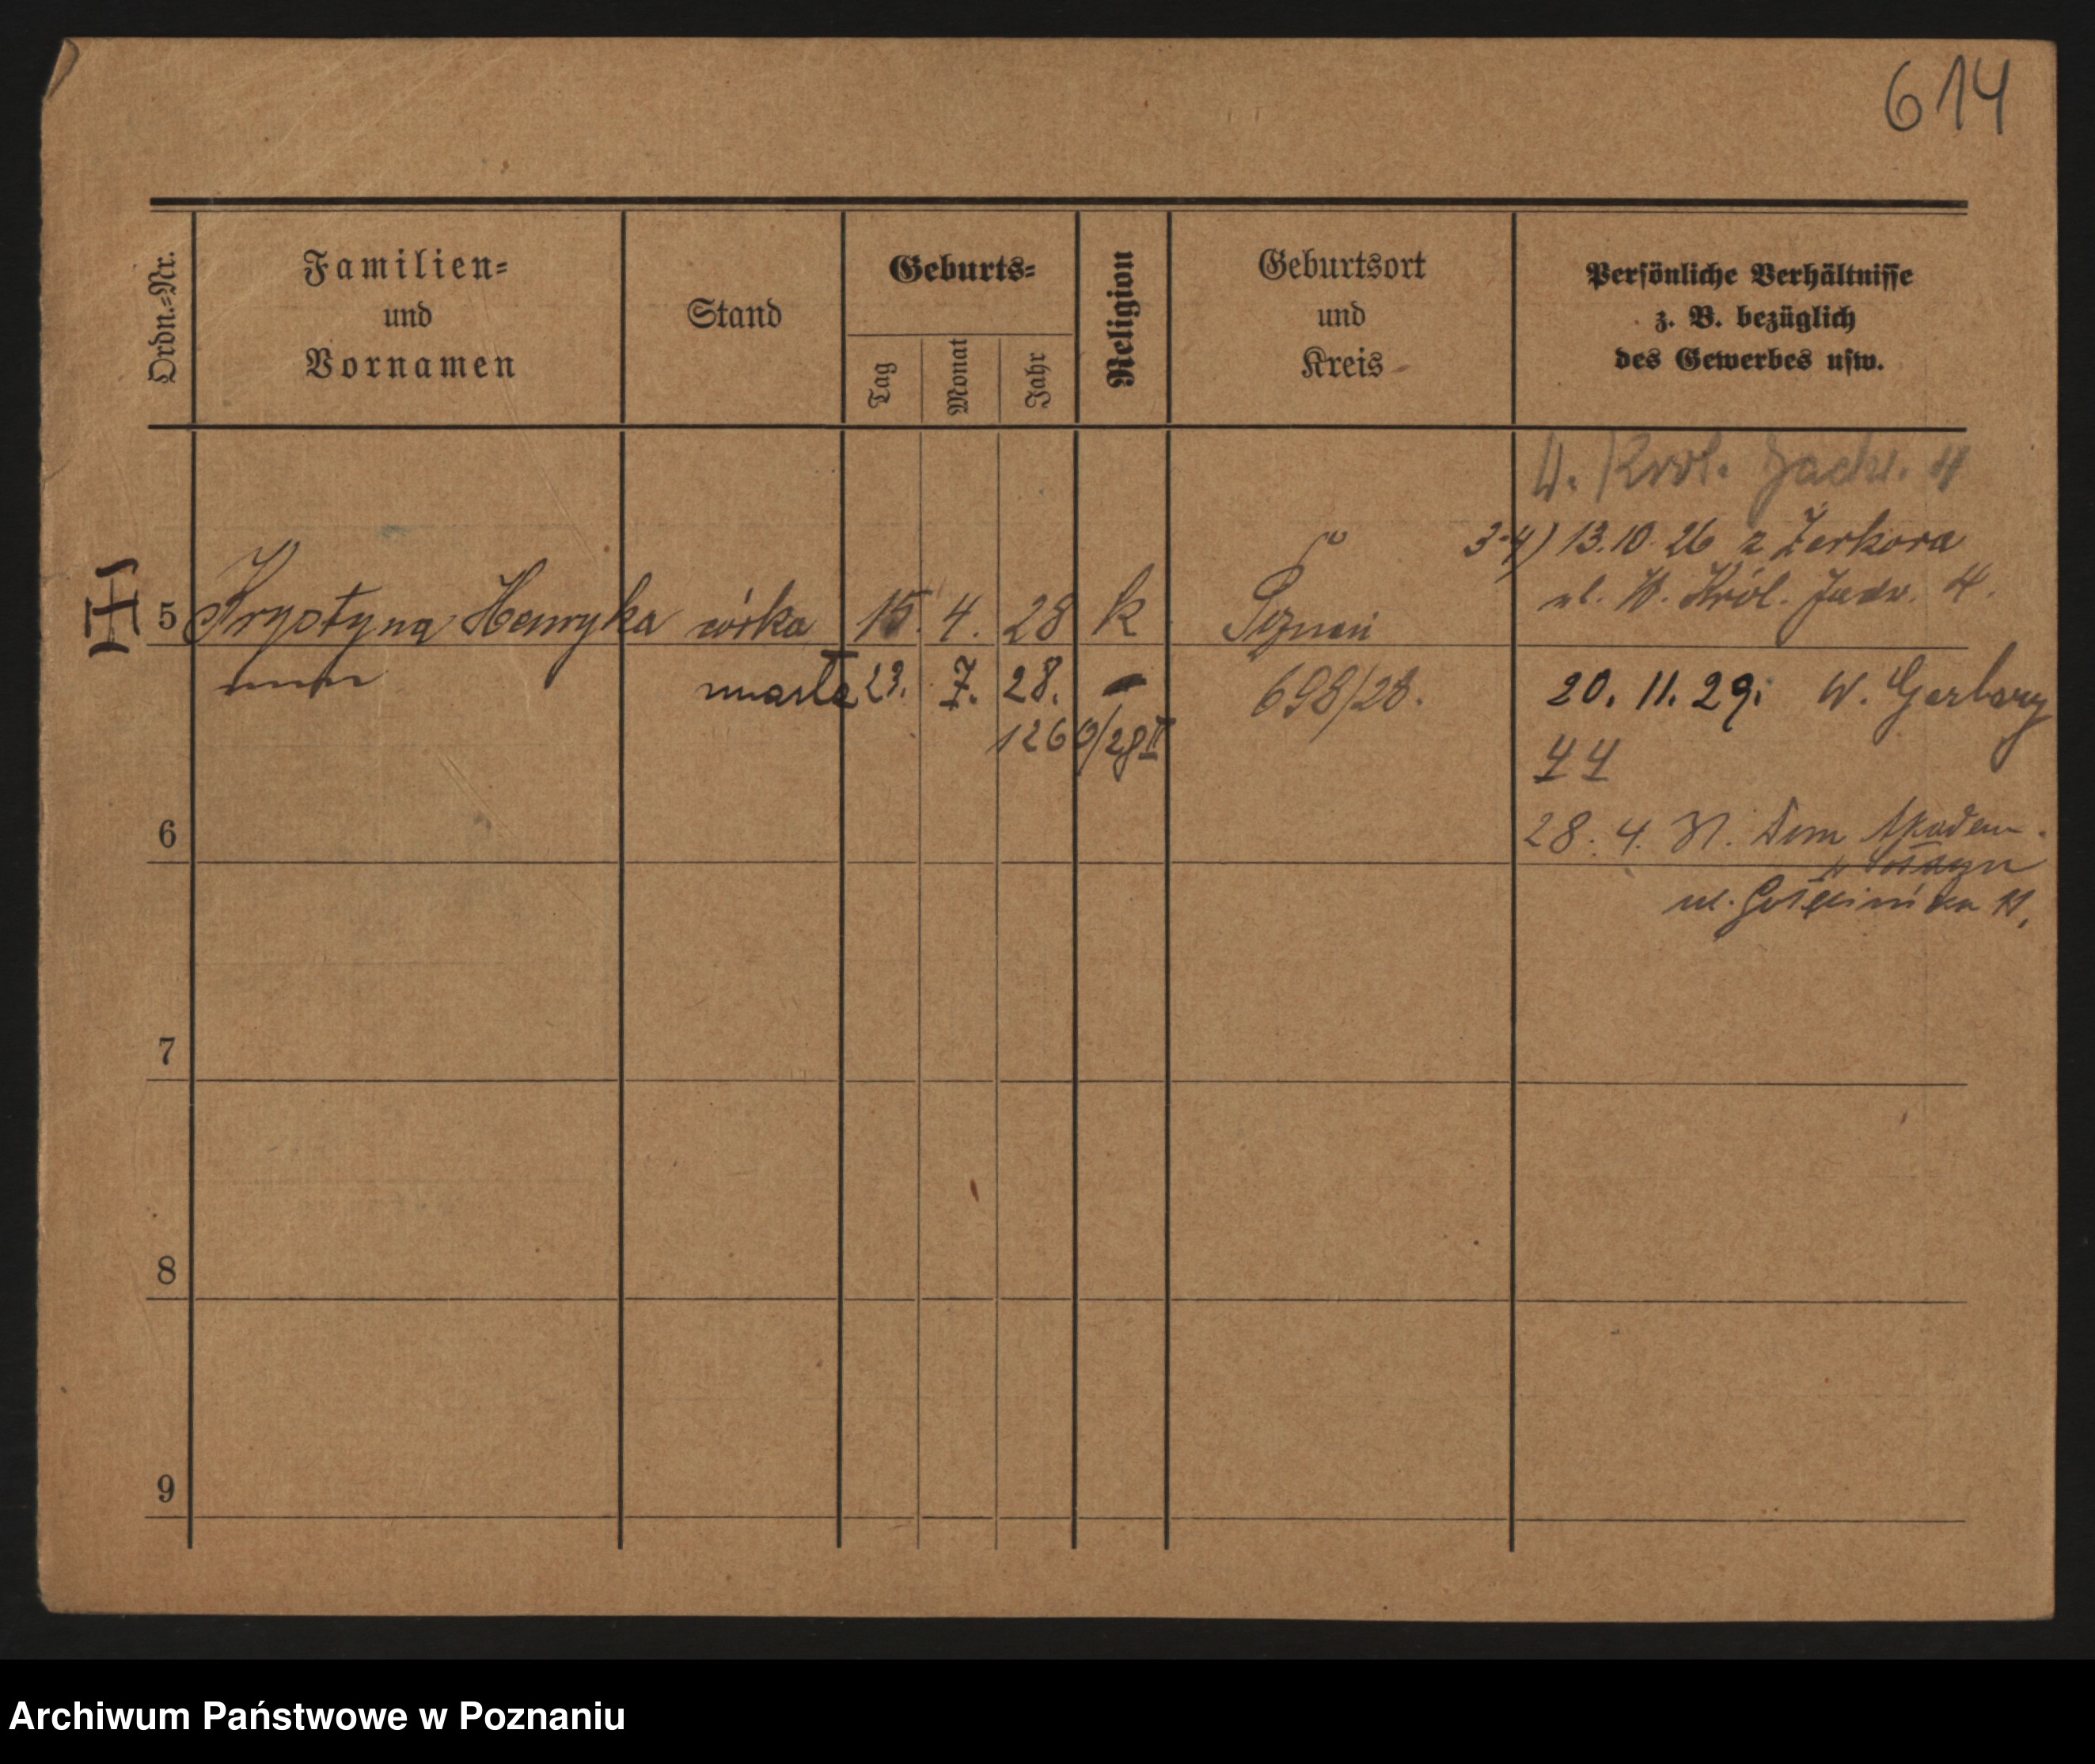 614
Ordn.-Nr.
Familien-
und
Vornamen
Stand
Geburts-
Tag
Monat
Jahr
Religion
Geburtsort
und
Kreis
Persönliche Verhältnisse
z. B. bezüglich
des Gewerbes usw.
W. Król. Jadw. 4
3-4) 13.10.26 z Żerkowa
ul. W. Król. Jadw. 4.
5 Krystyna Henryka córka 15. 4. 28 k Poznań
umarła 23. 7. 28. -
698/28.
1260/28 II
20. 11. 29. W. Garbary
44
6
28. 4. 31. Dom Akadem.
ul. 
7
8
9
Archiwum Państwowe w Poznaniu